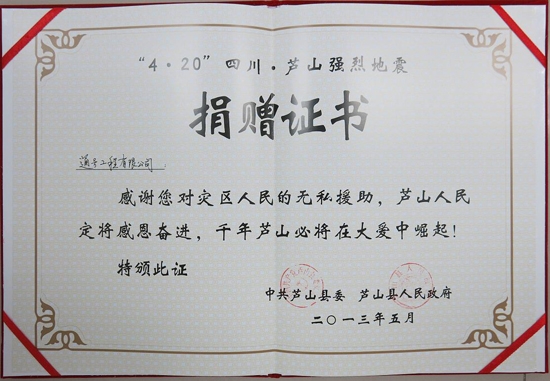 “4·20”四川·芦山强烈地震
捐赠证书
通号工程有限公司
感谢您对灾区人民的无私援助，芦山人民
定将感恩奋进，千年芦山必将在大爱中崛起！
特颁此证
中共芦山县委 芦山县人民政府
二〇一三年五月